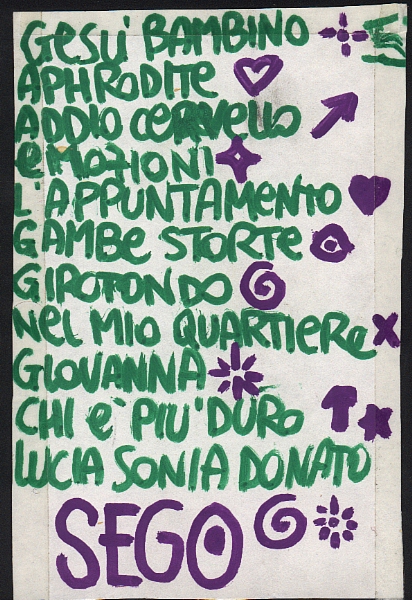 Gesù BAMBINO
APHRODITE
ADDIO CERVELLO
eMOZIONI
L'APPUNTAMENTO
GAMBE STORTE
GIROTONDO
Nel MIO QUARTIERE
GIOVANNA
CHI e' PIU' DURO
LUCIA SONIA DONATO
SEGO